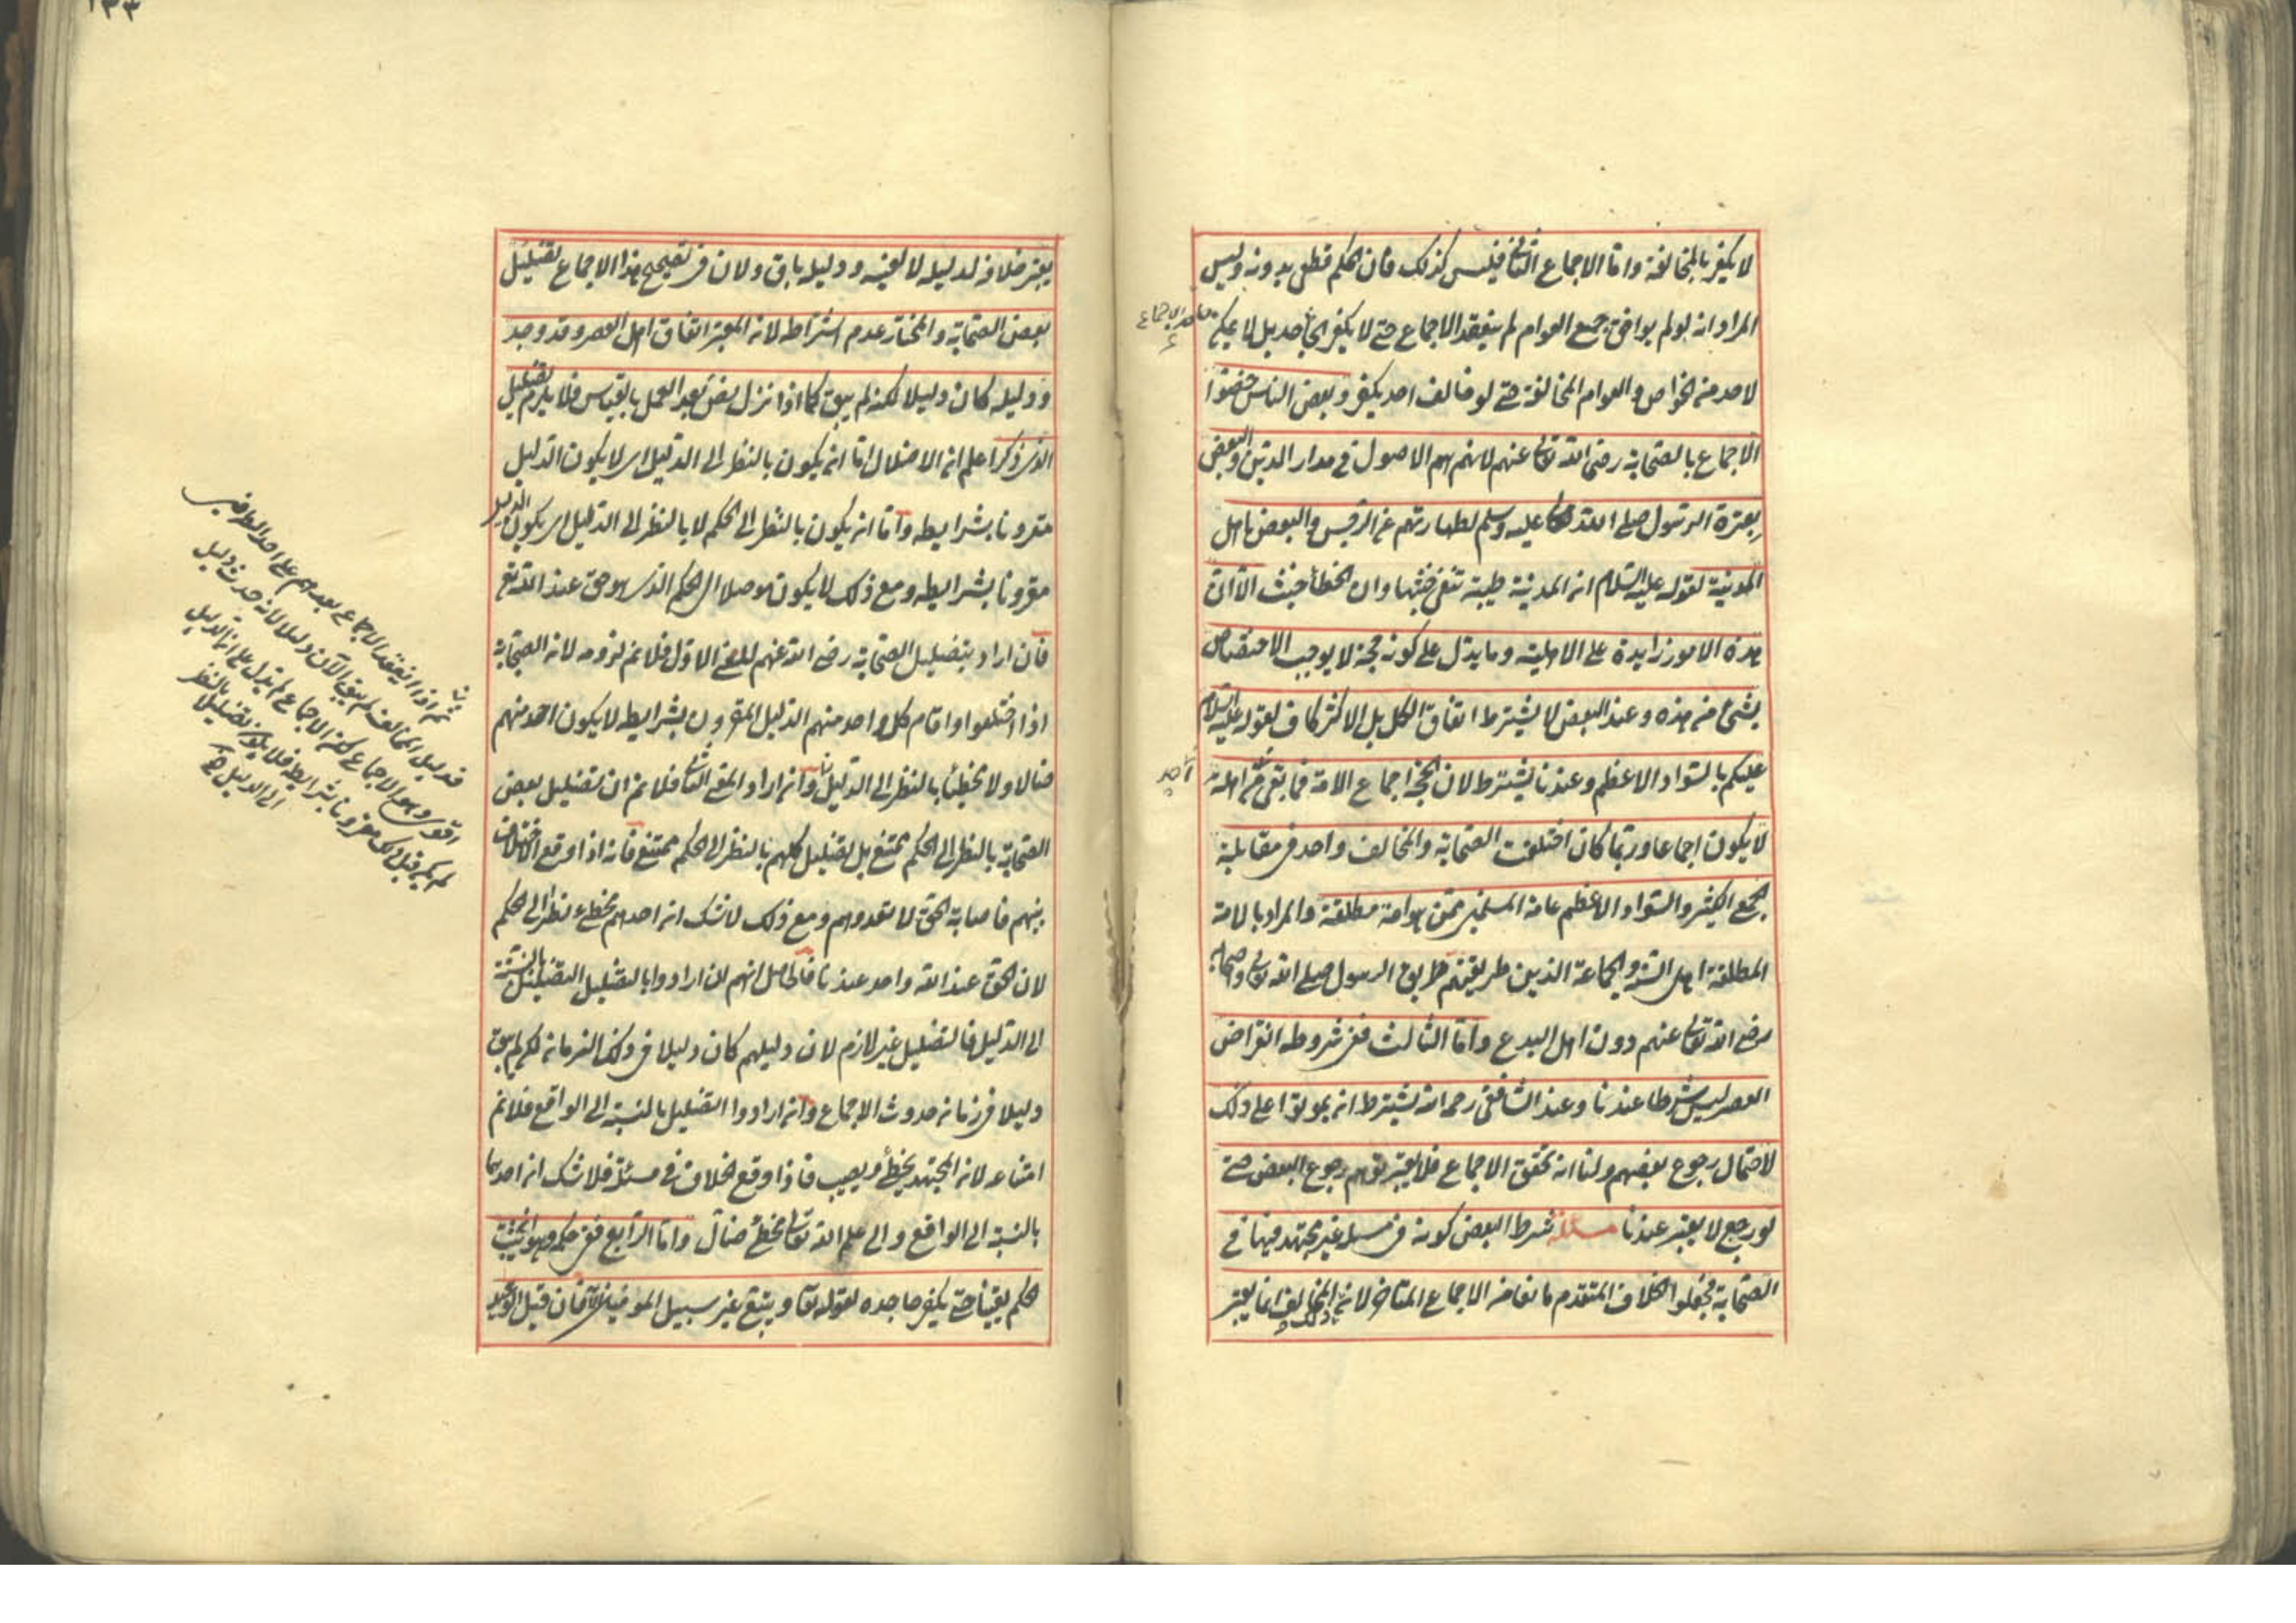 لا يكفر بالمخالفة واما الاجماع الثانى فليس كذلك فان الحكم قطعى بدونه وليس
المراد انه لو لم يوافق جميع العوام لم ينعقد الاجماع حتى لا يكفر الجاحد بل لا يمكن
لاحد من الخواص والعوام المخالفة حتى لو خالف احد يكفر وبعض الناس خصوا
الاجماع بالصحابة رضى الله تعالى عنهم لانهم هم الاصول فى مدار الدين والبعض
بعترة الرسول صلى الله تعالى عليه وسلم لطهارتهم عن الرجس والبعض باهل
المدينة لقوله عليه السلام ان المدينة طيبة تنفى خبثها وان الخطأ خبث الا ان
هذه الامور زايدة على الاهلية وما يدل على كونه حجة لا يوجب الاختصاص
بشئ من هذه وعند البعض لا يشترط اتفاق الكل بل الاكثر كاف لقوله عليه السلام
عليكم بالسواد الاعظم وعندنا يشترط لان الحجة اجماع الامة فما بقى من اهله
لا يكون اجماعا وربما كان اختلفت الصحابة والمخالف واحد فى مقابلة
الجمع الكثير والسواد الاعظم عامة المسلمين ممن هو امة مطلقة والمراد بالامة
المطلقة اهل السنة والجماعة الذين طريقتهم طريق الرسول صلى الله تعالى وصحابه
رضى الله تعالى عنهم دون اهل البدع واما الثالث ففى شروطه انقراض
العصر ليس شرطا عندنا وعند الشافعى رحمه الله يشترط ان يموتوا على ذلك
لاحتمال رجوع بعضهم ولنا انه تحقق الاجماع فلا يعتبر توهم رجوع البعض حتى
لو رجع لا يعتبر عندنا مسئلة شرط البعض كونه فى مسئلة غير مجتهد فيها فى
الصحابة فجعلوا الخلاف المتقدم مانعا من الاجماع المتأخر لان ذلك المخالف انما يعتبر
جاحد الاجماع
احد
١٣٣
يعتبر خلافه لدليله لا لعينه ودليله باق ولان فى تصحيح هذا الاجماع تضليل
بعض الصحابة والمختار عدم اشتراطه لان المعتبر اتفاق اهل العصر وقد وجد
ودليله كان دليلا لكنه لم يبق كما اذا نزل نص بعد العمل بالقياس فلا يلزم تضليل
الذى ذكر اعلم ان الاضلال اما ان يكون بالنظر الى الدليل اى لا يكون الدليل
مقرونا بشرايطه واما ان يكون بالنظر الى الحكم لا بالنظر الى الدليل اى يكون الدليل
مقرونا بشرايطه ومع ذلك لا يكون موصلا الى الحكم الذى هو حق عند الله تع
فان اراد بتضليل الصحابة رضى الله عنهم المعنى الاول فلا نم لزومه لان الصحابة
اذا اختلفوا واقام كل واحد منهم الدليل المقرون بشرايطه لا يكون احد منهم
ضالا ولا مخطئا بالنظر الى الدليل وان اراد المعنى الثانى فلا نم ان تضليل بعض
الصحابة بالنظر الى الحكم ممتنع بل تضليل كلهم بالنظر الى الحكم ممتنع فانه اذا وقع الاختلاف
بينهم فاصابة الحق لا تعدوهم ومع ذلك لا شك ان احدهم مخطئ نظرا الى الحكم
لان الحق عند الله واحد عندنا فالحاصل انهم ان ارادوا بالتضليل التضليل بالنسبة
الى الدليل فالتضليل غير لازم لان دليلهم كان دليلا فى ذلك الزمان لكن لم يبق
دليلا فى زمان حدوث الاجماع وان ارادوا التضليل بالنسبة الى الواقع فلا نم
امتناعه لان المجتهد يخطئ ويصيب فاذا وقع الخلاف فى مسئلة فلا شك ان احدهما
بالنسبة الى الواقع والى علم الله تعالى مخطئ ضال واما الرابع ففى حكمه وهو ان يثبت
الحكم يقينا حتى يكفر جاحده لقوله تعا ويتبع غير سبيل المؤمنين الآية فان قيل الوعيد
ثم اذا انعقد الاجماع بعدهم على احد الطرفين
فدليل المخالف لم يبق الآن دليلا لانه حدث دليل
اقوى وهو الاجماع لكن الاجماع لم يدل على ان الدليل
لم يكن قبل ذلك مقرونا بشرايطه فلا يلزم تضليل بالنظر
الى الدليل